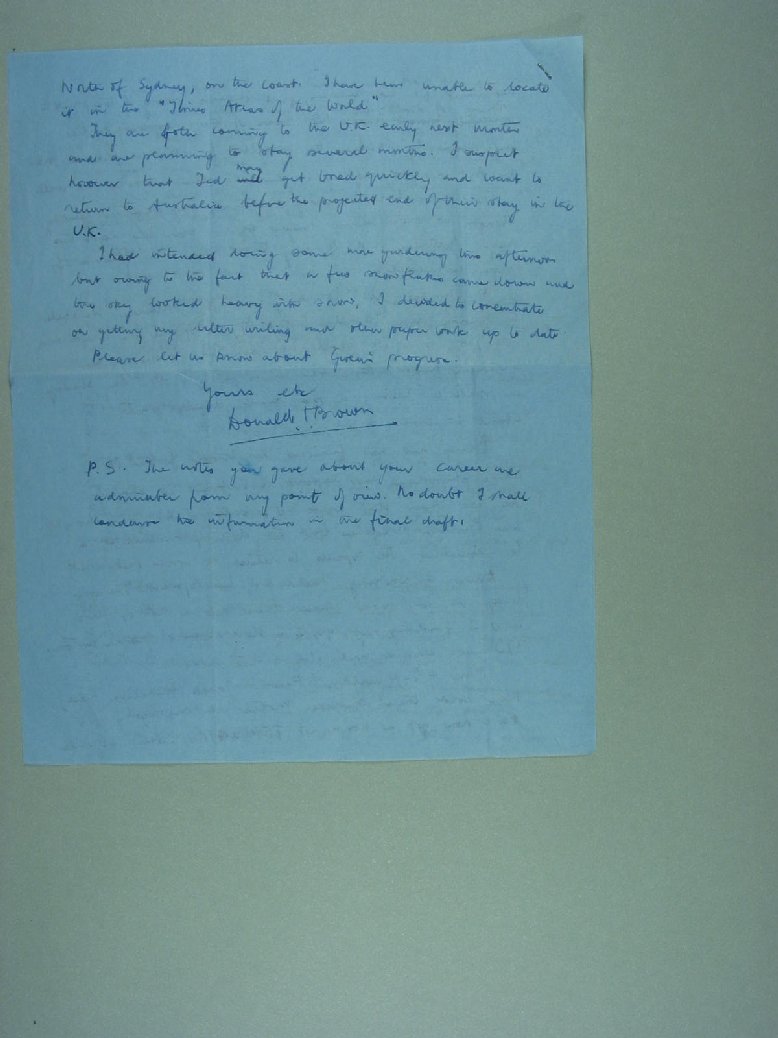 North of Sydney, on the coast. I have been unable to locate
it in the "Times Atlas of the World"
They are both coming to the U.K. early next month
and are planning to stay several months. I suspect
however that Ted may get bored quickly and want to
return to Australia before the projected end of their stay in the
U.K.
I had intended doing some more gardening this afternoon
but owing to the fact that a few snowflakes came down and
the sky looked heavy with snow, I decided to concentrate
on getting my letter writing and other paper work up to date
Please let us know about Gwen's progress.
Yours etc
Donald T Brown
P.S. The notes you gave about your career are
admirable from my point of view. No doubt I shall
condense the information in the final draft.